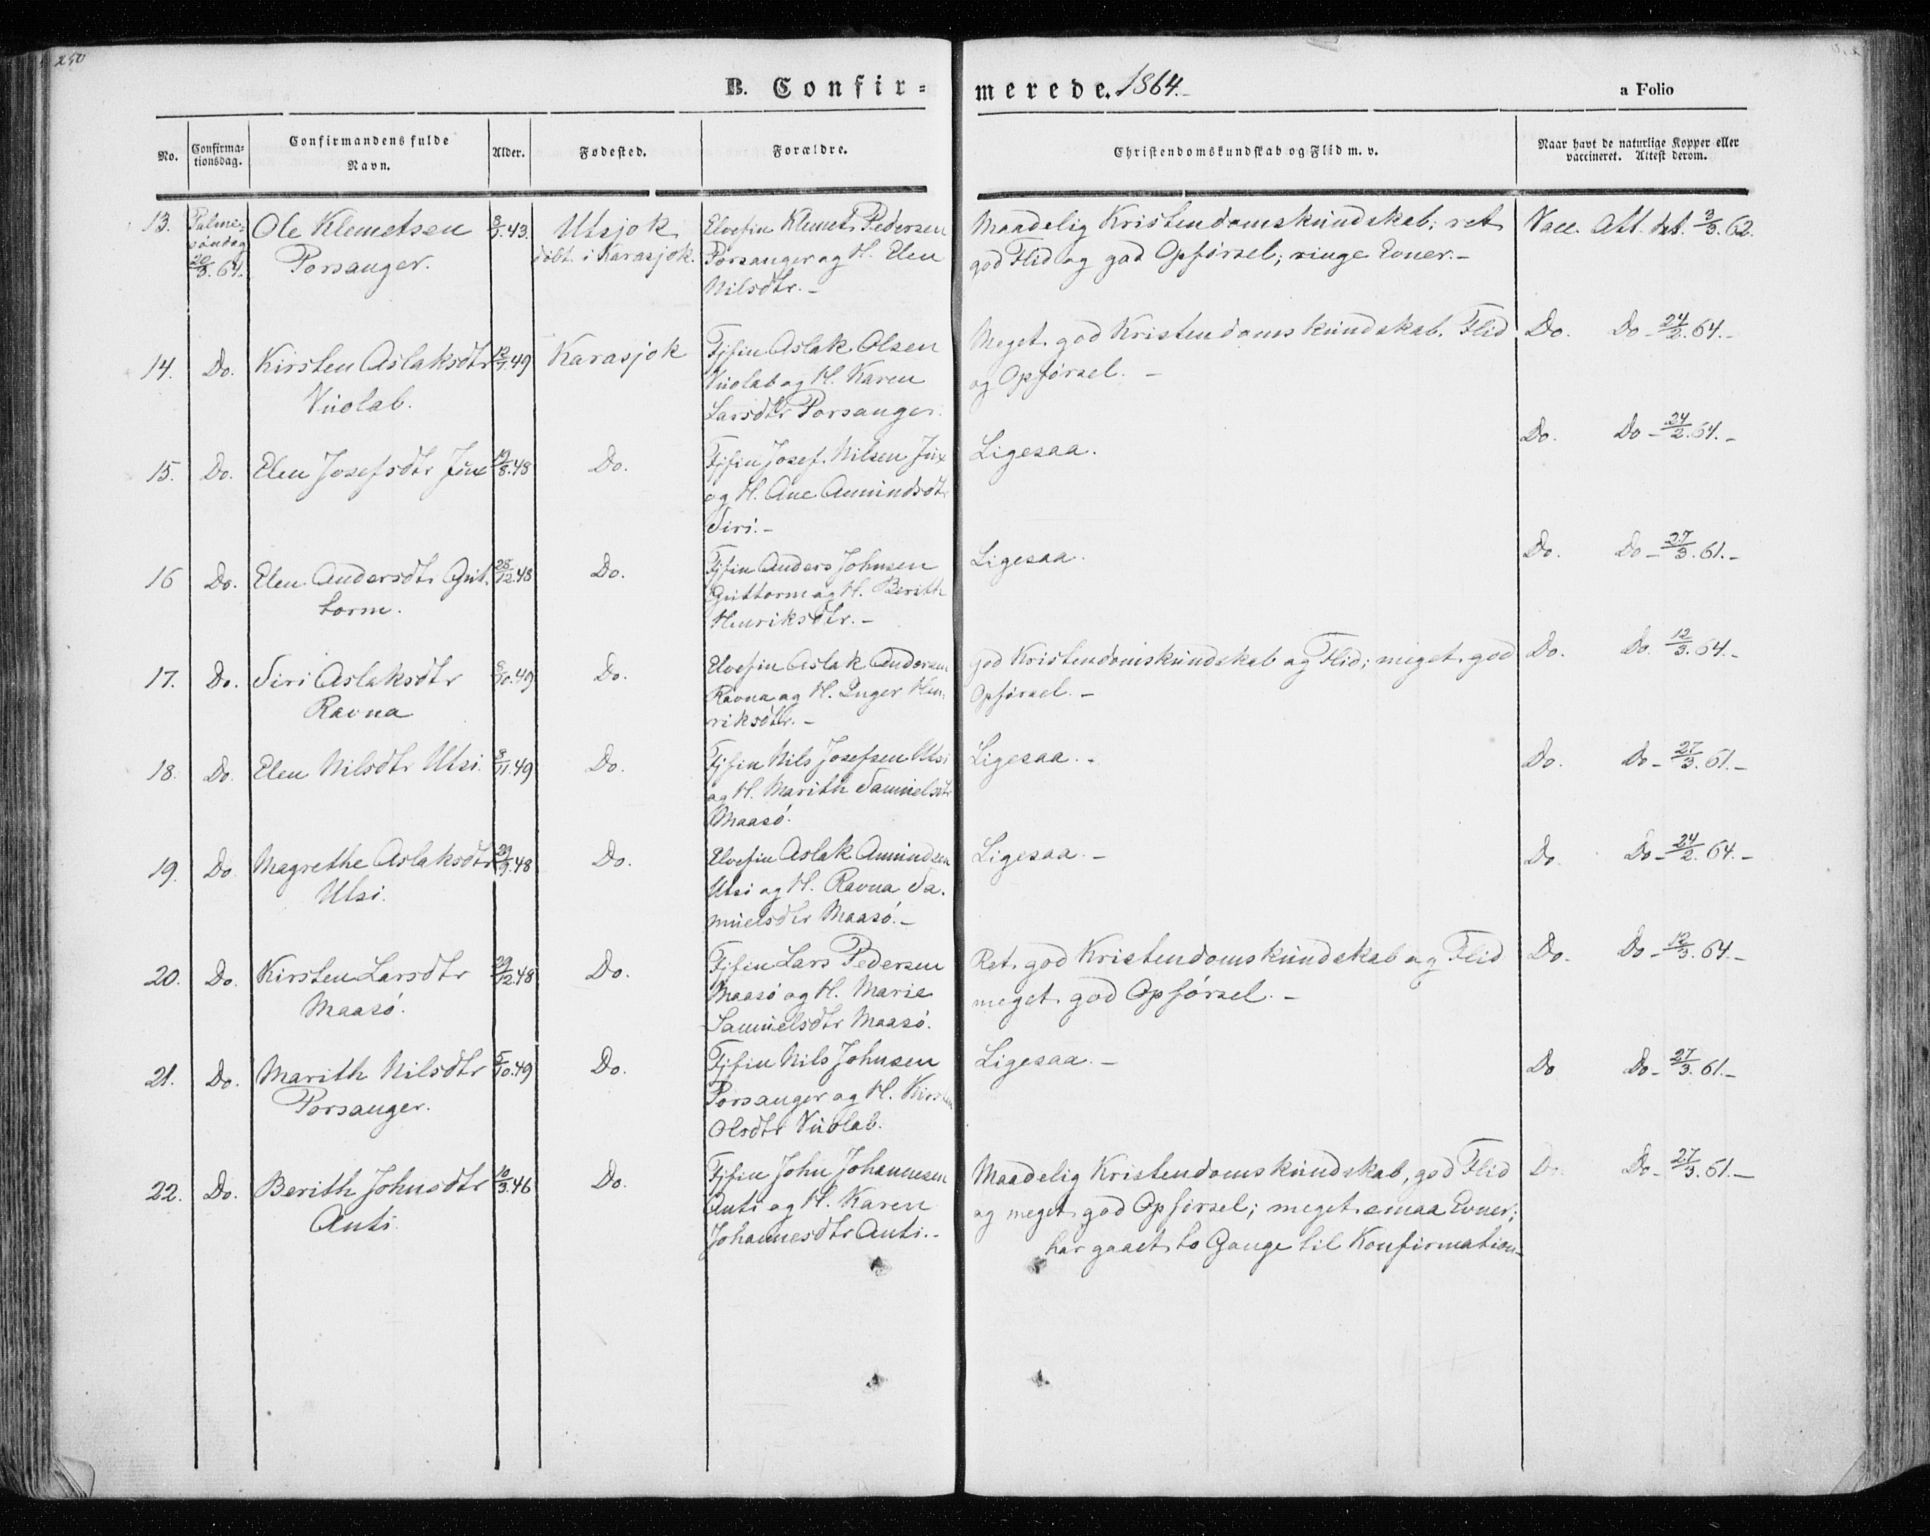 250
B. Confir-merede. 1864.-
a Folio
No.
Confirma-tionsdag.
Confirmandens fulde Navn.
Alder.
Fødested.
Forældre.
Christendomskundskab og Flid m. v.
Naar havt de naturlige Kopper eller vaccineret. Attest derom.
13.
Palme-
søndag
20/3.64.
Ole Klemetsen
Porsanger.
Utsjok
döbt i Karasjok.
Elvefin Klemet Pedersen
Porsanger og H. Elen
Nilsdtr.-
Maadelig Kristendomskundskab; ret
god Flid og god Opförsel; ringe Evner.-
Vacc. Att. dat. 3/3.62.
14.
Do.
Kirsten Aslaksdtr
Vuolab.
Karasjok
Fjfin Aslak Olsen
Vuolab og H. Karen
Larsdtr Porsanger.
Meget god Kristendomskundskab. Flid
og Opförsel.-
Do. Do- 24/2.64.-
15.
Do.
Elen Josefsdtr Jux
19/8.48
Do.
Fjfin Josef Nilsen Jux
og H. Ane Amundsdtr
Siri.-
Ligesaa.
Do. Do- 24/2.64.-
16
Do.
Elen Andersdtr Gut-
torm.
28/12.48
Do.
Fjfin Anders Johnsen
Guttorm og H. Berith
Henriksdtr.-
Ligesaa.
Do. Do- 27/3.61.-
17.
Do.
Siri Aslaksdtr
Ravna
Do.
Elvefin Aslak Andersen
Ravna og H. Inger Hen-
riksdtr.-
god Kristendomskundskab og Flid; meget god
Opförsel.-
Do. Do. 12/3.64.-
18.
Do.
Elen Nilsdtr Utsi.
3/11.49
Do.
Fjfin Nils Josefsen Utsi
og H. Marith Samuelsdtr
Maasö.
Ligesaa.-
Do. Do- 27/3.61.-
19.
Do.
Magrethe Aslaksdtr
Utsi.
Do.
Elvefin Aslak Amundsen
Utsi og H. Ravna Sa-
muelsdtr Maasö.-
Ligesaa.-
Do. Do- 24/2.64.-
20.
Do.
Kirsten Larsdtr
Maasö.
29/12.48
Do.
Fjfin Lars Pedersen
Maasö og H. Marie
Samuelsdtr Maasö.
Ret god Kristendomskundskab og Flid
meget god Opförsel.-
Do. Do- 12/3.64.-
21.
Do.
Marith Nilsdtr
Porsanger.
5/10.49
Do.
Fjfin Nils Johnsen
Porsanger og H. Kirsten
Olsdtr Vuolab.
Ligesaa.-
Do Do- 27/3.61.-
22.
Do.
Berith Johnsdtr
Anti.
10/3.46
Do.
Fjfin John Johannesen
Anti og H. Karen
Johannesdtr Anti.-
Maadelig Kristendomskundskab, god Flid
og meget god Opförsel; meget smaa Evner;
har gaaet to Gange til Konfirmation-
Do. Do- 27/3.61.-